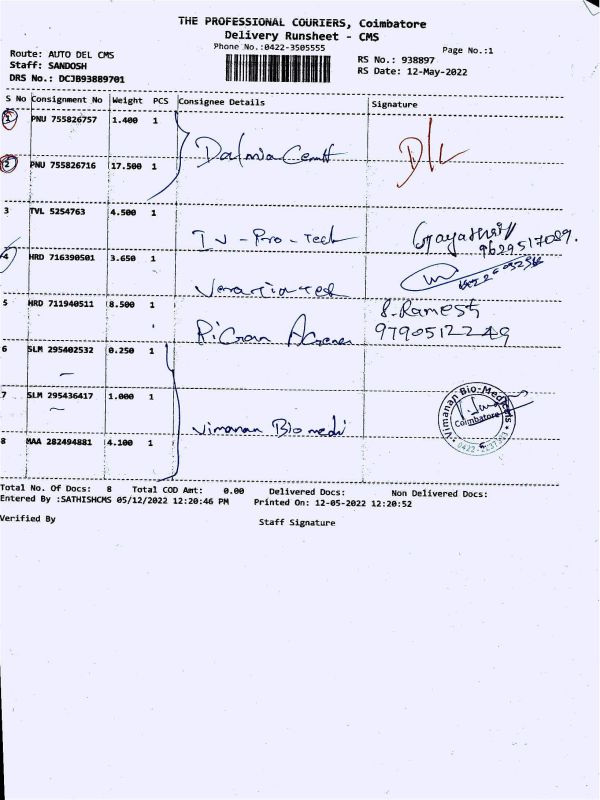 THE PROFESSIONAL COURIERS, Coimbatore
Delivery Runsheet - CMS
Phone No.:0422-3505555
Page No.:1
Route: AUTO DEL CMS
RS No.: 938897
Staff: SANDOSH
RS Date: 12-May-2022
DRS No.: DCJB93889701
S No Consignment No Weight PCS Consignee Details Signature
1 PNU 755826757 1.400 1
Dalmia Cemt
2 PNU 755826716 17.500 1
3 TVL 5254763 4.500 1
IV-Pro-Tech Gayathri
9629517089.
4 HRD 716390501 3.650 1
5 HRD 711940511 8.500 1
S.Ramesh
9790512249
6 SLM 295402532 0.250 1
7 SLM 295436417 1.000 1
Vimanan Biomedi
Vimanan Bio-Medicals
Coimbatore
8 MAA 282494881 4.100 1
Total No. Of Docs: 8 Total COD Amt: 0.00 Delivered Docs: Non Delivered Docs:
Entered By :SATHISHCMS 05/12/2022 12:20:46 PM Printed On: 12-05-2022 12:20:52
Verified By
Staff Signature